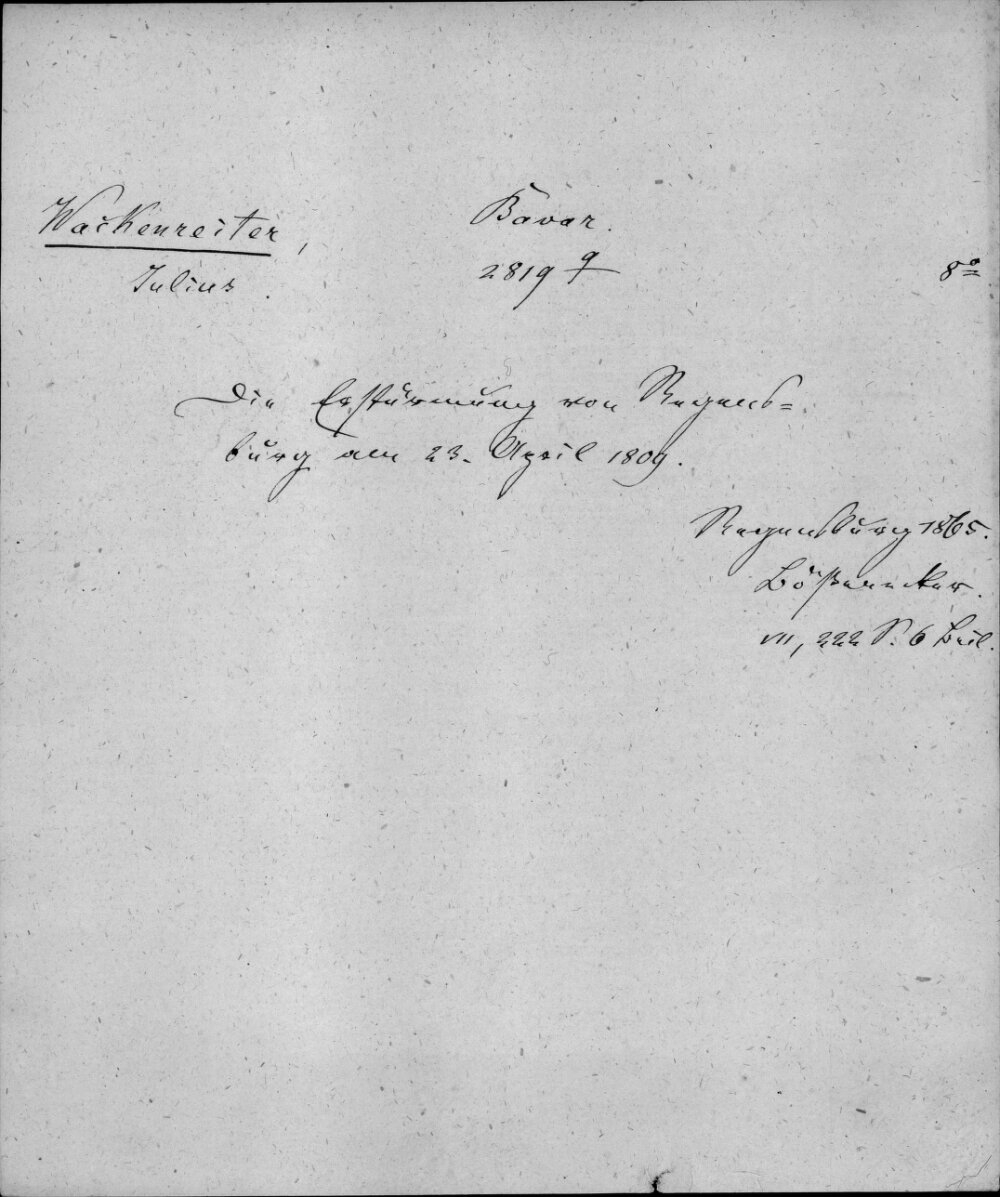 Wackenreiter,
Julius.
Bavar.
2819 q
8º
Die Erstürmung von Regens=
burg am 23. April 1809.
Regensburg 1865.
Bößenecker.
VII, 222 S. 6 Beil.